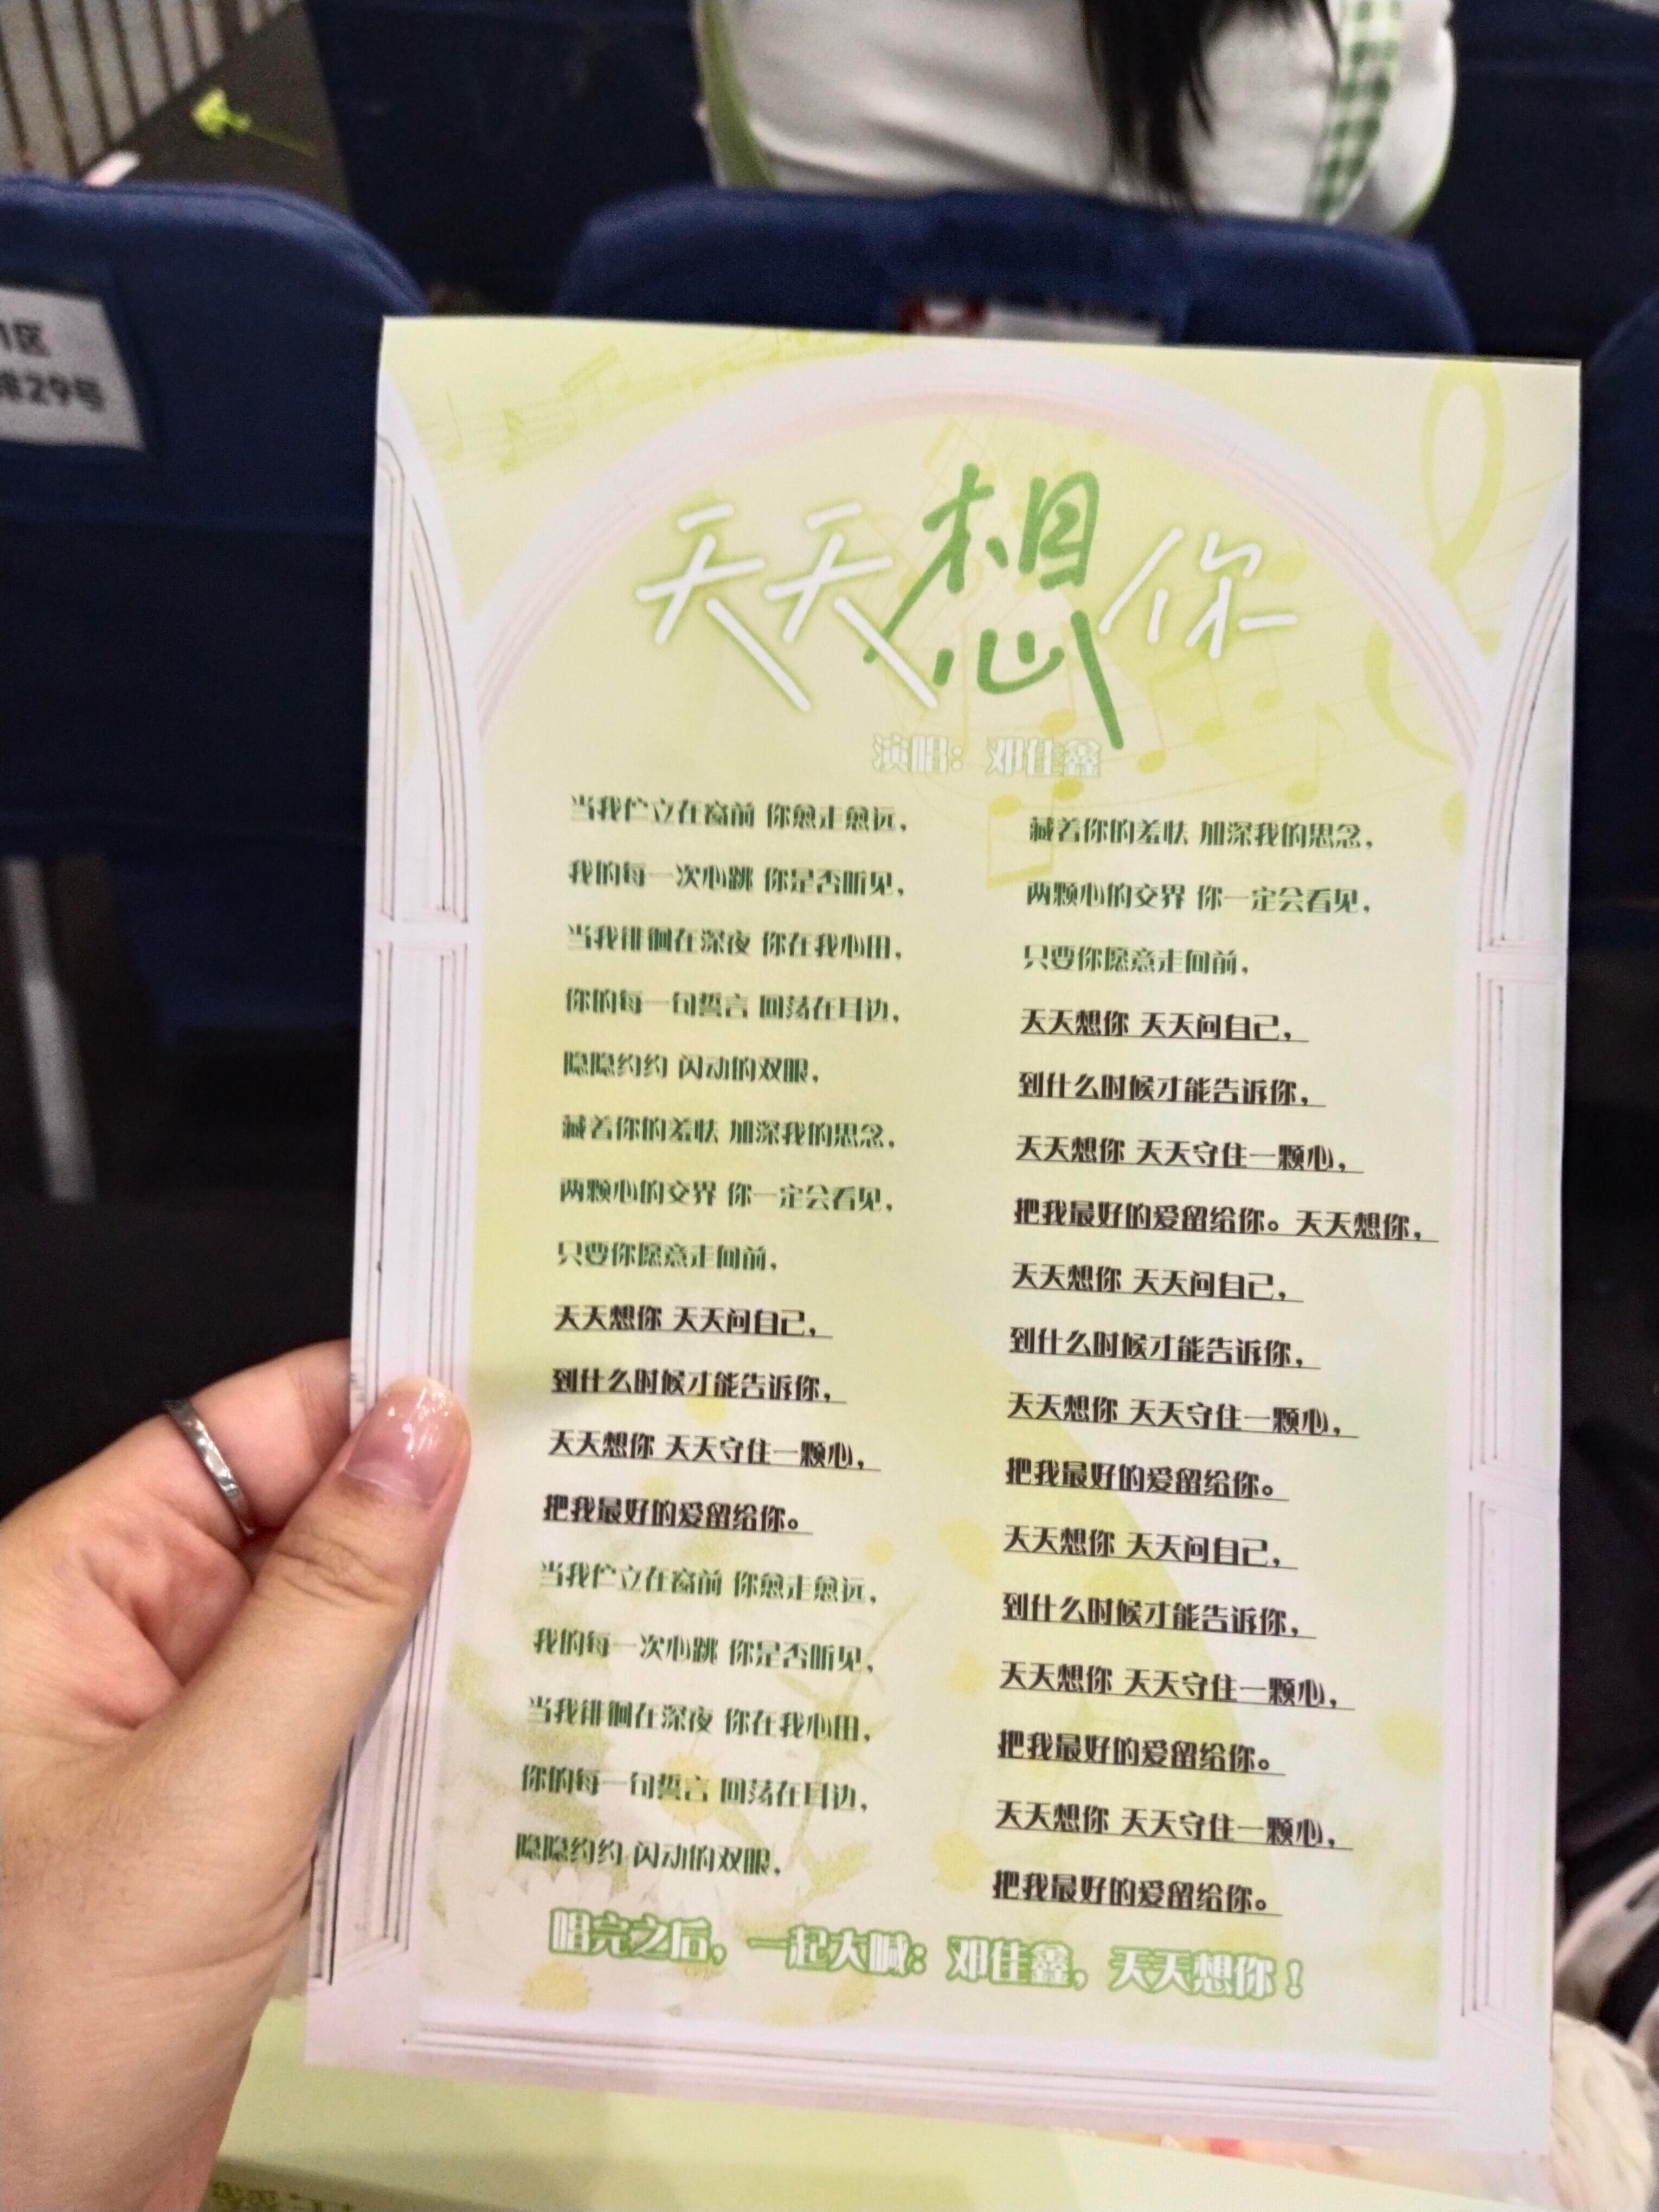 1区
排29号
天天想你
演唱：邓佳鑫
当我伫立在窗前 你愈走愈远，
我的每一次心跳 你是否听见，
当我徘徊在深夜 你在我心田，
你的每一句誓言 回荡在耳边，
隐隐约约 闪动的双眼，
藏着你的羞怯 加深我的思念，
两颗心的交界 你一定会看见，
只要你愿意走向前，
天天想你 天天问自己，
到什么时候才能告诉你，
天天想你 天天守住一颗心，
把我最好的爱留给你。
当我伫立在窗前 你愈走愈远，
我的每一次心跳 你是否听见，
当我徘徊在深夜 你在我心田，
你的每一句誓言 回荡在耳边，
隐隐约约 闪动的双眼，
藏着你的羞怯 加深我的思念，
两颗心的交界 你一定会看见，
只要你愿意走向前，
天天想你 天天问自己，
到什么时候才能告诉你，
天天想你 天天守住一颗心，
把我最好的爱留给你。天天想你，
天天想你 天天问自己，
到什么时候才能告诉你，
天天想你 天天守住一颗心，
把我最好的爱留给你。
天天想你 天天问自己，
到什么时候才能告诉你，
天天想你 天天守住一颗心，
把我最好的爱留给你。
天天想你 天天守住一颗心，
把我最好的爱留给你。
唱完之后，一起大喊：邓佳鑫，天天想你！